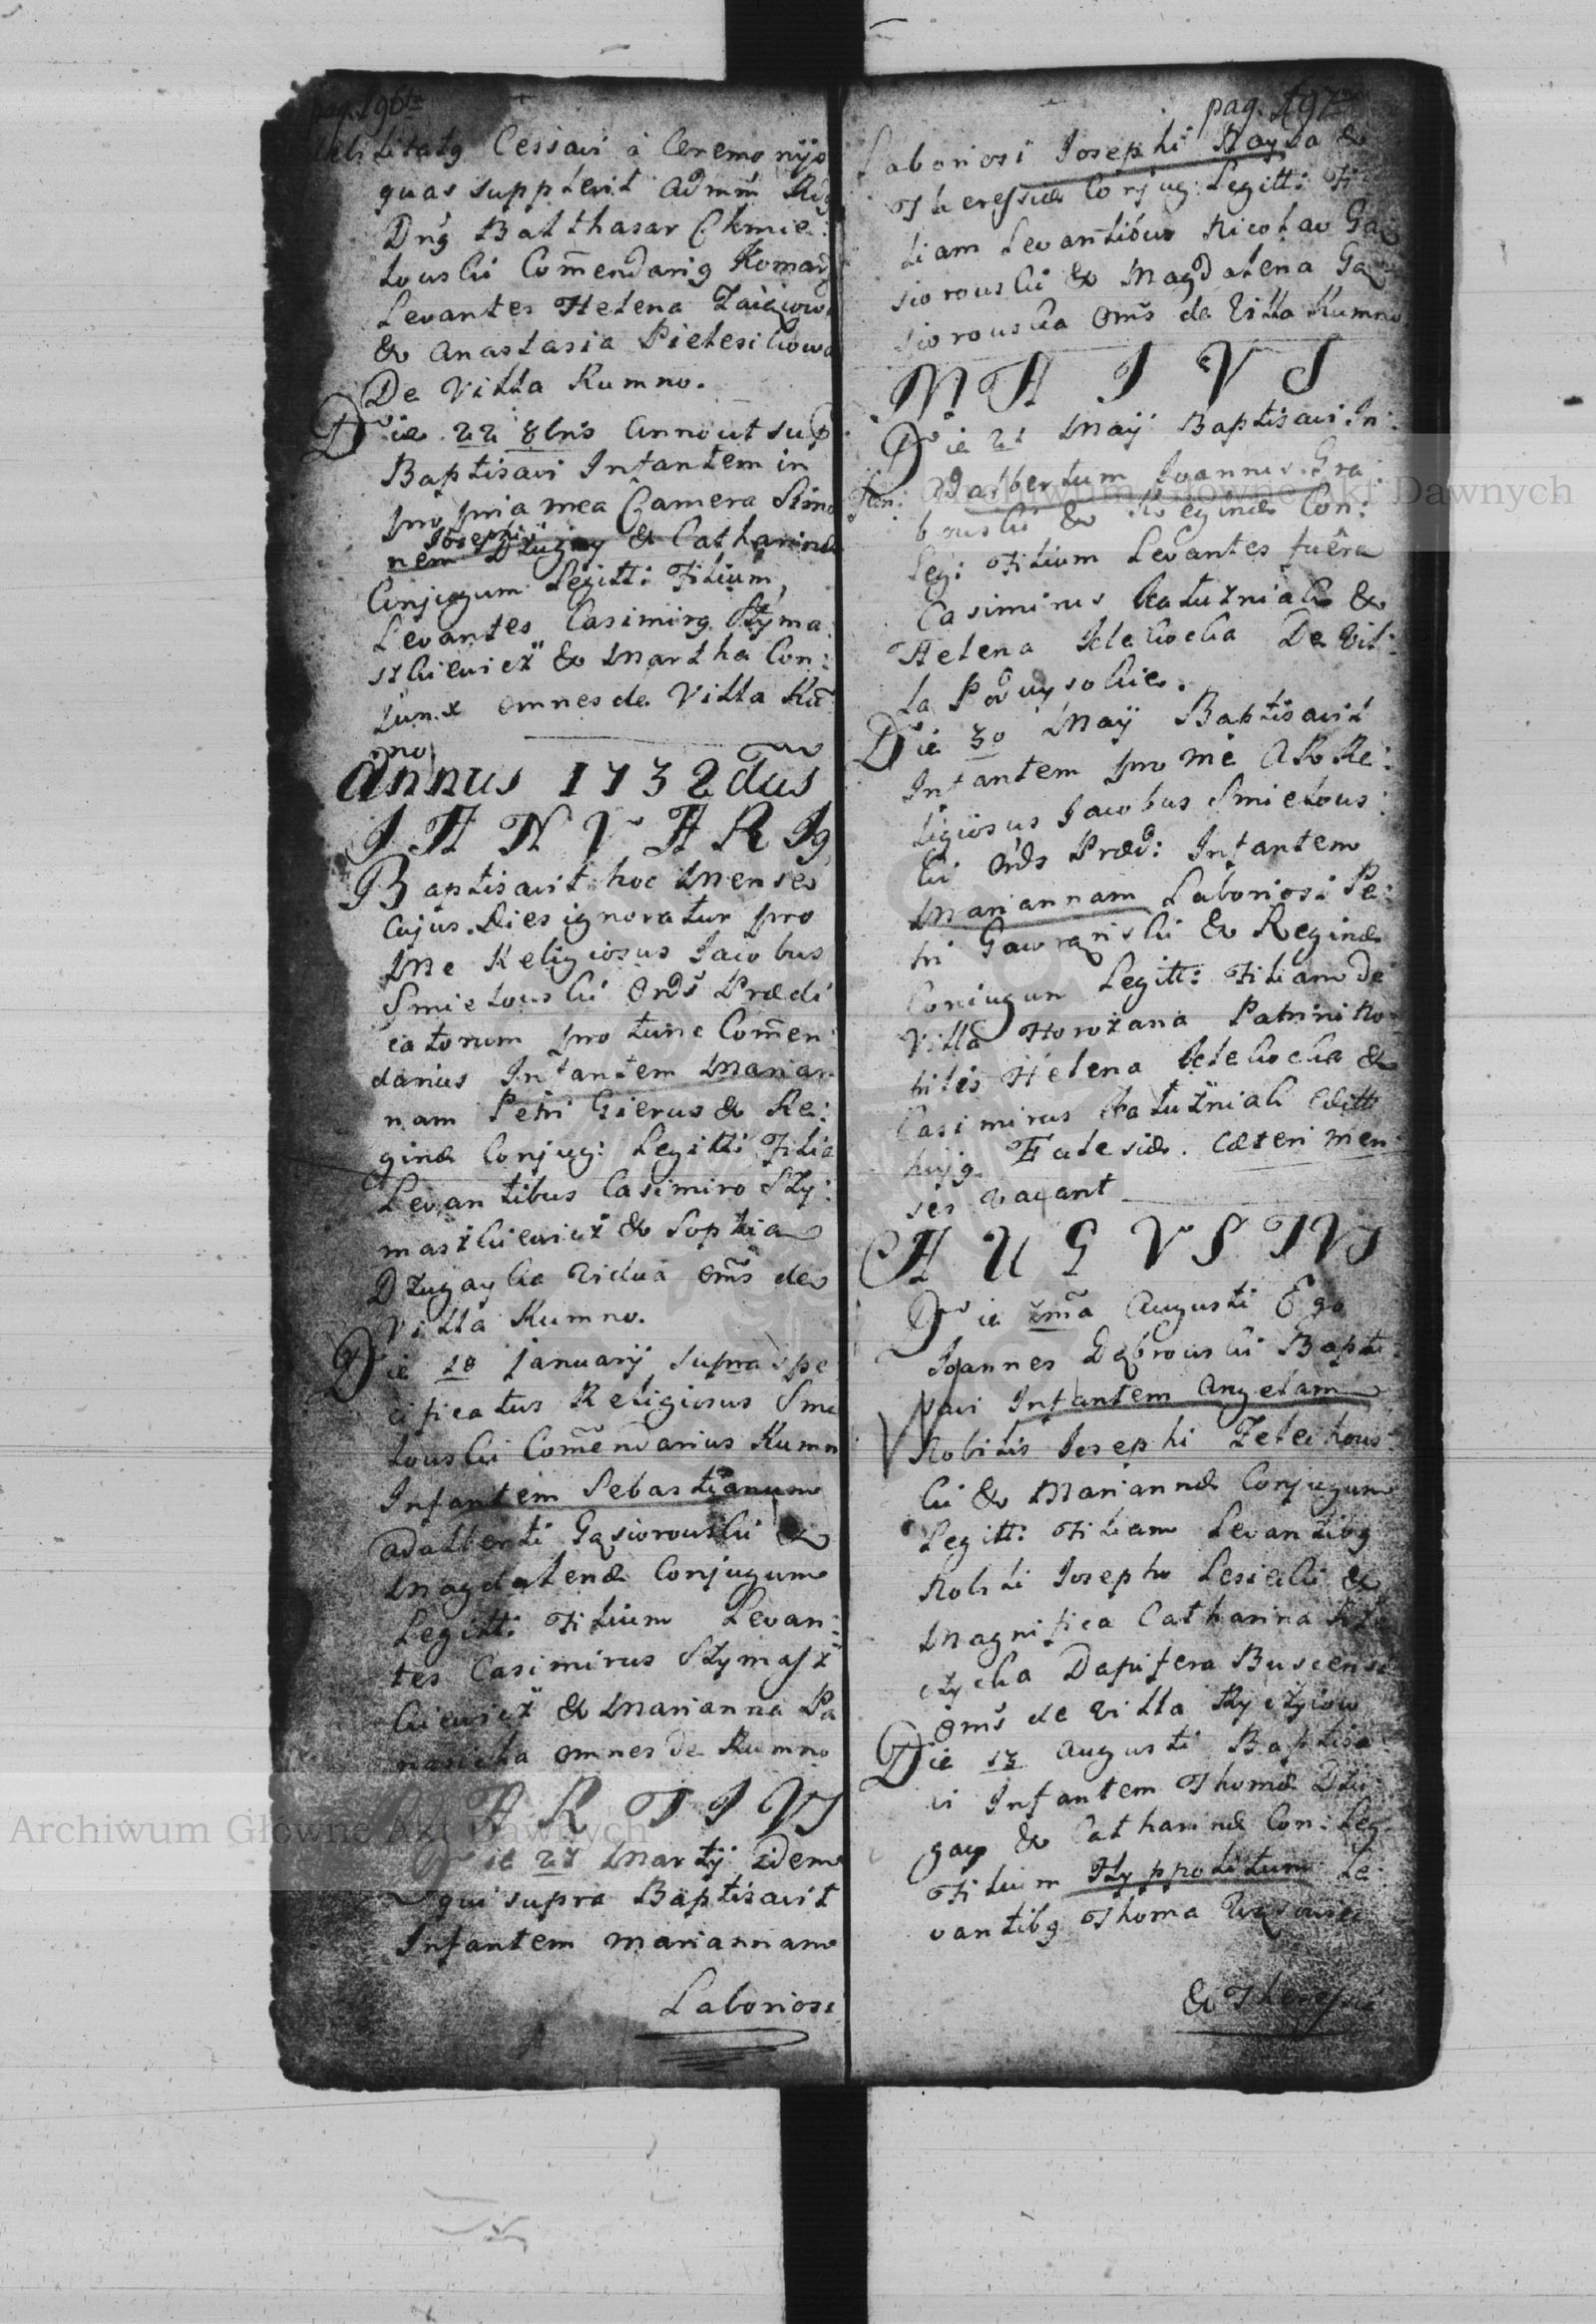 pag. 196ta
debilitatq Cessavi à Ceremonijs
quas supplevit Adm̄m Rdq
Dn̄q Balthasar Chmie:
lowski Com̄endariq Komarz
Levantes Helena
& Anastasia Pietesikowa
De Villa Kumno.
Die 22 8bris Anno ut sup
Baptisavi Infantem in
propria mea Camera Simo
Josephi
nem Dzugay & Catharinæ
Conjugum Legitt: Filium,
Levantes Casimirq Szyma
szkiewicz & Martha Con:
iun.x omnes de Villa Kū
no
Annus 1732dus
JANVARIq
Baptisavit hoc Mense
Cujus Dies ignoratur pro
Me Religiosus Jacobus
Smielowski Ordš Prædi
catorum pro tunc Com̄en
darius Infantem Marian
nam Petri Gierus & Re:
ginæ Conjug: Legitt: Filia
Levantibus Casimiro Szy:
maszkiewicz & Sophia
Dzugayka Vidua omš de
Villa Kumno.
Die 10 January supra spe
cificatus Religiosus Smie
lowski Com̄endarius Kumn
Infantem Sebastianum
Adalberti Gąsiorowski &
Magdalenæ Conjugum
Legitt: Filium Levan:
tes Casimirus Szymasz
kiewicz & Marianna Pa
nasicha omnes de Kumno
MARTIVS
Die 27 Martij Idem
qui supra Baptisavit
Infantem Mariannam
Laboriosi
pag. 197ma
Laboriosi Josephi Hayda &
Theressiæ Conjug: Legitt: Fi
liam Levantibus Nicolao Gą
siorowski & Magdalena Gą
siorowska Omš de Villa Kumno
MAIVS
Die 21 Maij Baptisavi In:
fan: Adalbertum Joannis Gra
bowski & Reginæ Con:
Leg: Filium Levantes fuêre
Casimirus Kałuzniak &
Helena De Vil:
la Podwysokie.
Die 30 Maij Baptisavit
Infantem pro me A R Re:
ligiosus Jacobus Smielows
ki Ords Præd: Infantem
Mariannam Laboriosi Pe:
tri & Reginæ
Coniugun Legitt: Filiam de
Villa Horozana Patrini No
biles Helena &
Casimirus Kałuzniak Editt
hujq Eccleсiæ. Cæteri men
ses vacant
AUGVSTVS
Die 2ma Augusti Ego
Joannes Dąbrowski Bapti
savi Infantem Angelam
Nobilis Josephi Zelechows
ki & Mariannæ Conjugum
Legitt: Filiam Levantibq
Nobili Josepho Lesicki &
Magnifica Catharina
Dapifera Buscensi
Omš de Villa Ryczyiow
Die 13 Augusti Baptisa
vi Infantem Thomæ Dzu
gay & Catharinæ Con: Leg
Filium Hyppolitum Le:
vantibq Thoma
& Theressia
Archiwum Główne Akt Dawnych
Archiwum Główne Akt Dawnych